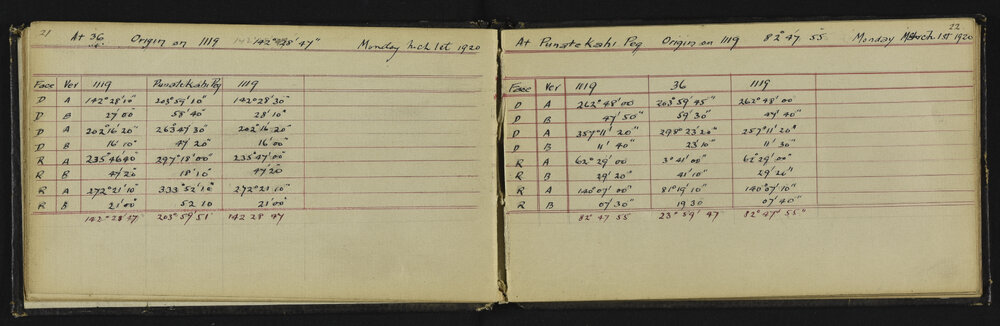 21
At 36 Origin on 1119 142°28'47" Monday Mch 1st 1920
Face Ver 1119 Punatekahi Peg 1119
D A 142°28'10" 203°59'10" 142°28'30"
D B 27'00" 58'40" 28'10"
D A 202°16'20" 263°47'30" 202°16'20"
D B 16'10" 47'20" 16'00"
R A 235°46'40" 297°18'00" 235°47'00"
R B 47'20" 18'10" 47'20
R A 272°21'10" 333°52'10" 272°21'10"
R B 21'00" 52 10 21'00"
142°28'47" 203°59'51" 142 28 47
22
At Punatekahi Peg Origin on 1119 82°47 55 Monday March 1st 1920
Face Ver 1119 36 1119
D A 262°48'00 203°59'45" 262°48'00
D B 47'50" 59'30" 47'40"
D A 357°11'20" 298°23'20" 257°11'20"
D B 11'40" 23'10" 11'30"
R A 62°29'00 3°41'00" 62°29'00"
R B 29'20" 41'10" 29'20"
R A 140°07'00" 81°19'10" 140°07'10"
R B 07'30" 19 30 07'40"
82°47 55 23°59'47 82°47'55"